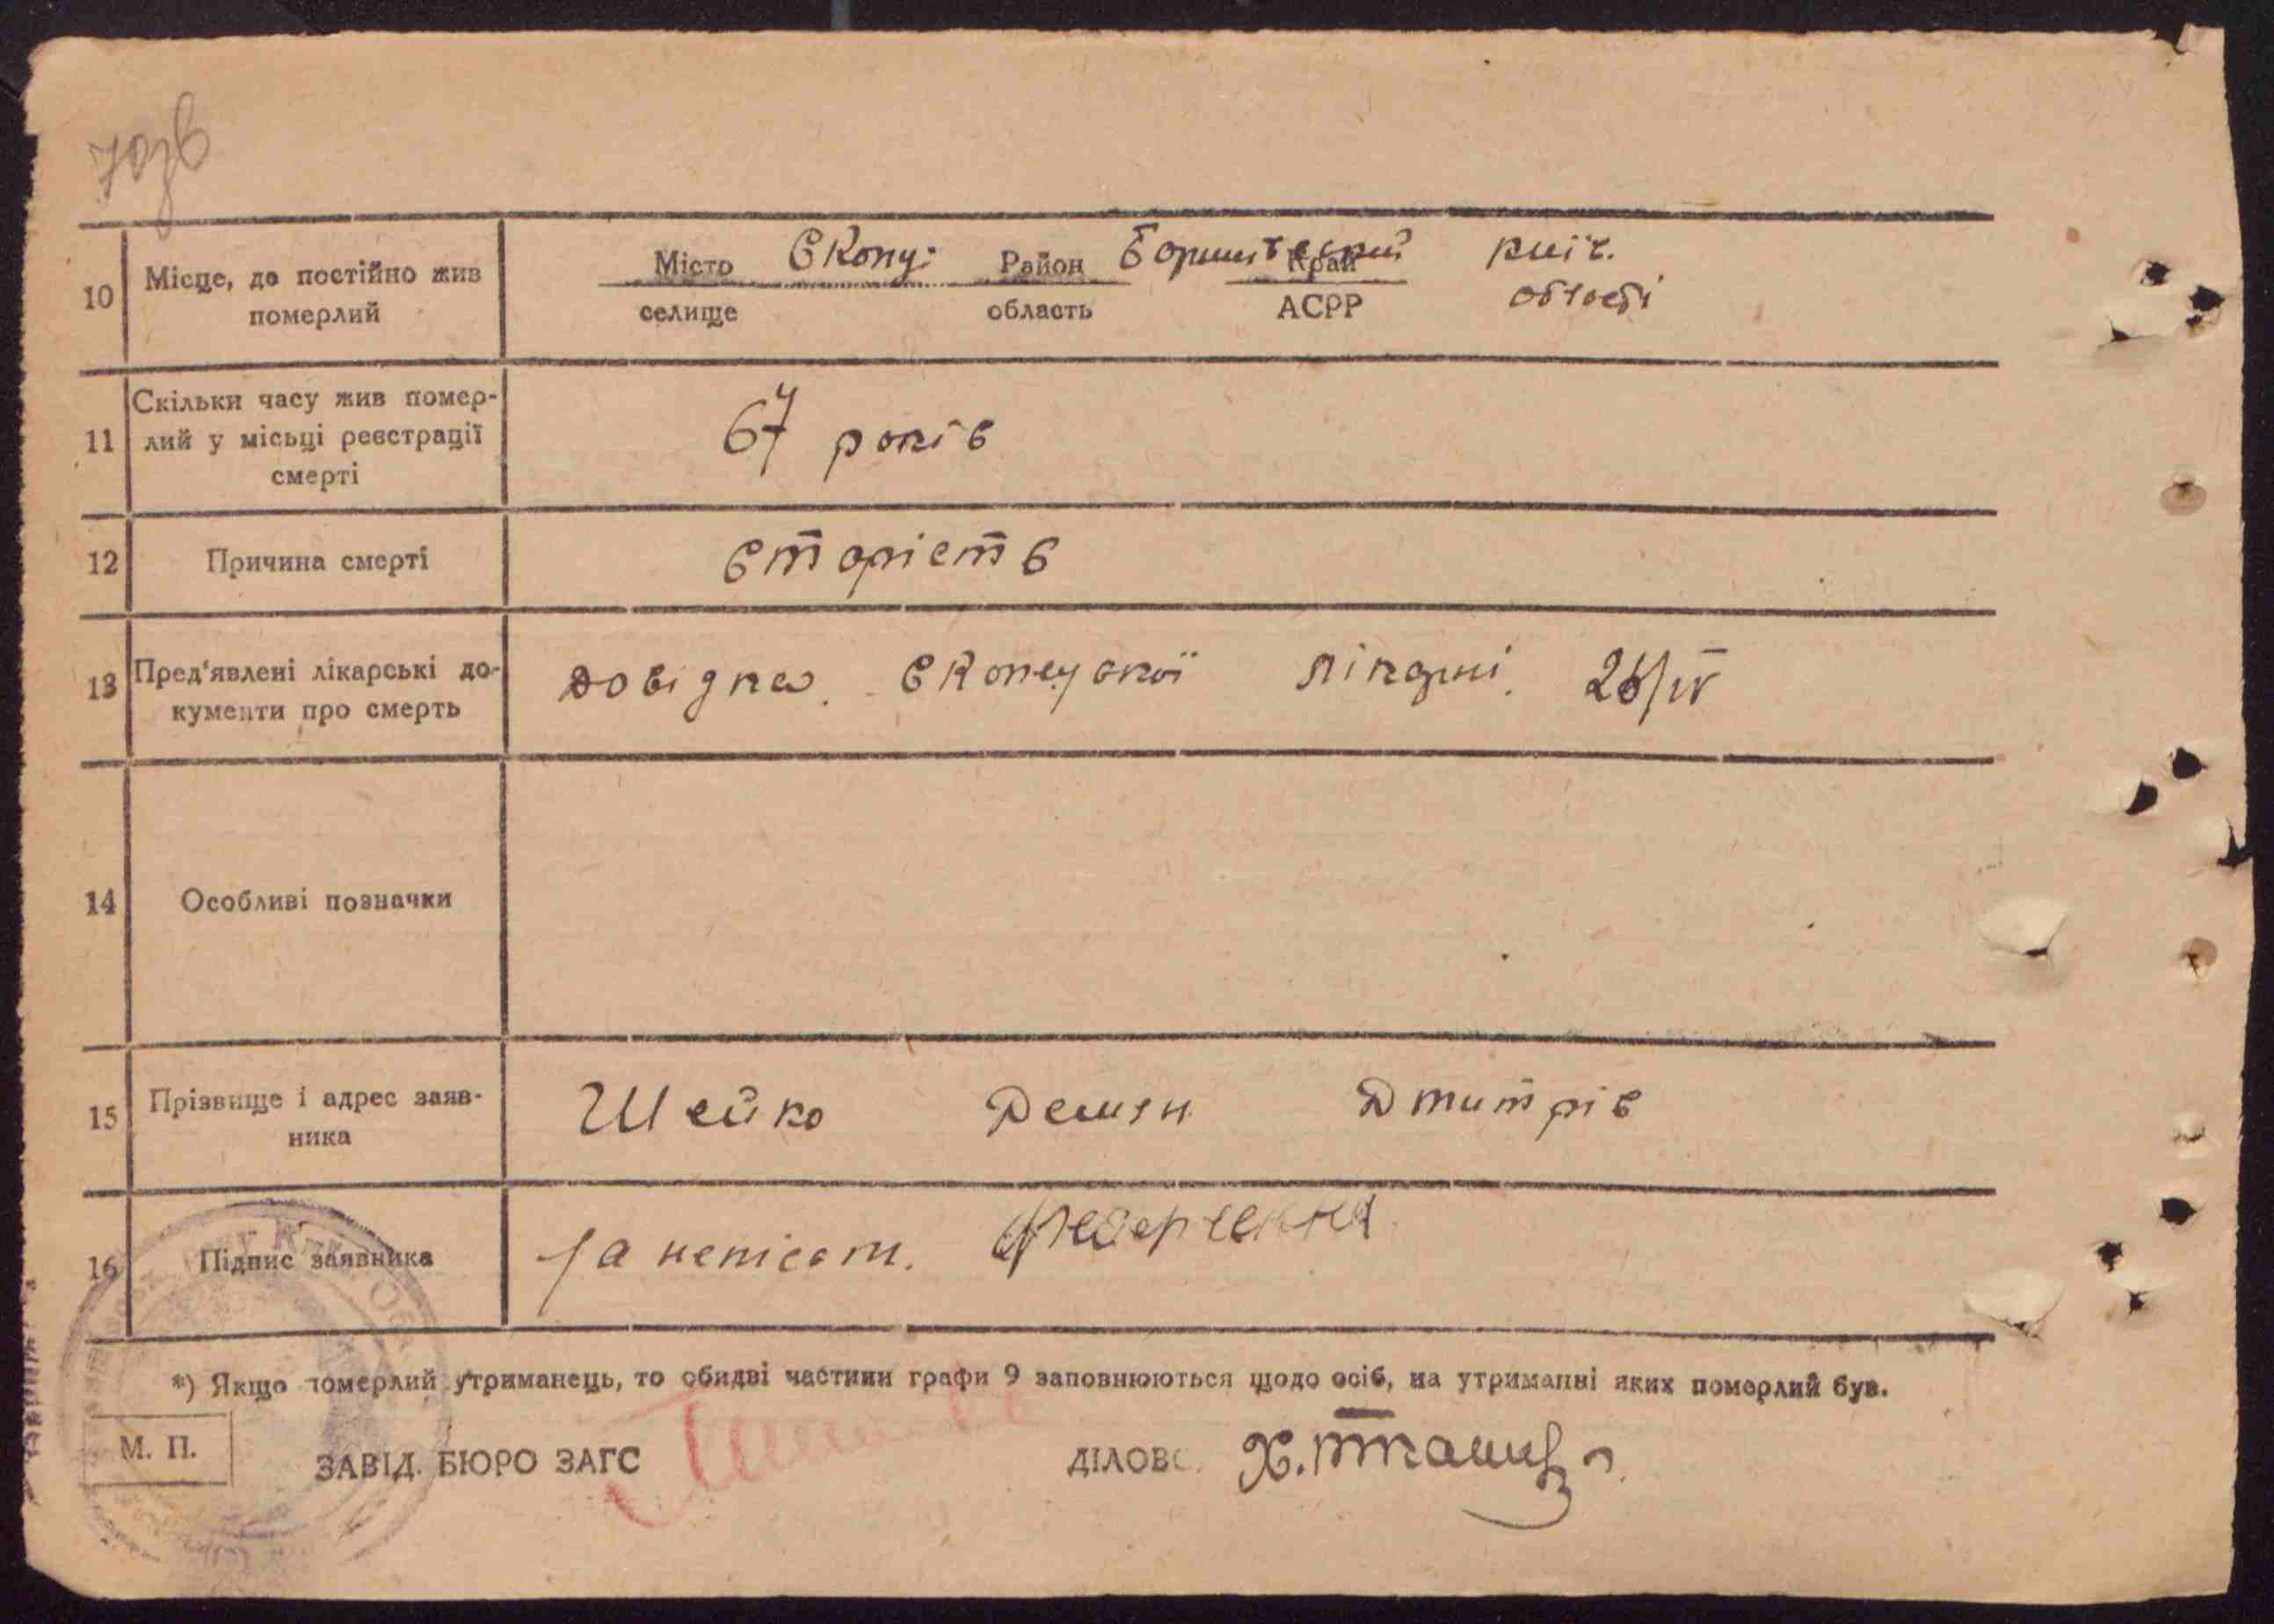 10
Місце, де постійно жив
померлий
Місто Скопці Район Бориспільский Край київ.
селище область АСРР області
11
Скільки часу жив помер-
лий у місьці реєстрації
смерті
67 років
12
Причина смерті
старість
13
Пред'явлені лікарські до-
кументи про смерть
довідка. Скопецької лікарні. 28/IV
14
Особливі позначки
15
Прізвище і адрес заяв-
ника
Шейко Демян Дмитрів
16
Підпис заявника
*) Якщо померлий утриманець, то обидві частини графи 9 заповнюються щодо осіб, на утриманні яких померлий був.
М. П.
ЗАВІД. БЮРО ЗАГС
ДІЛОВ